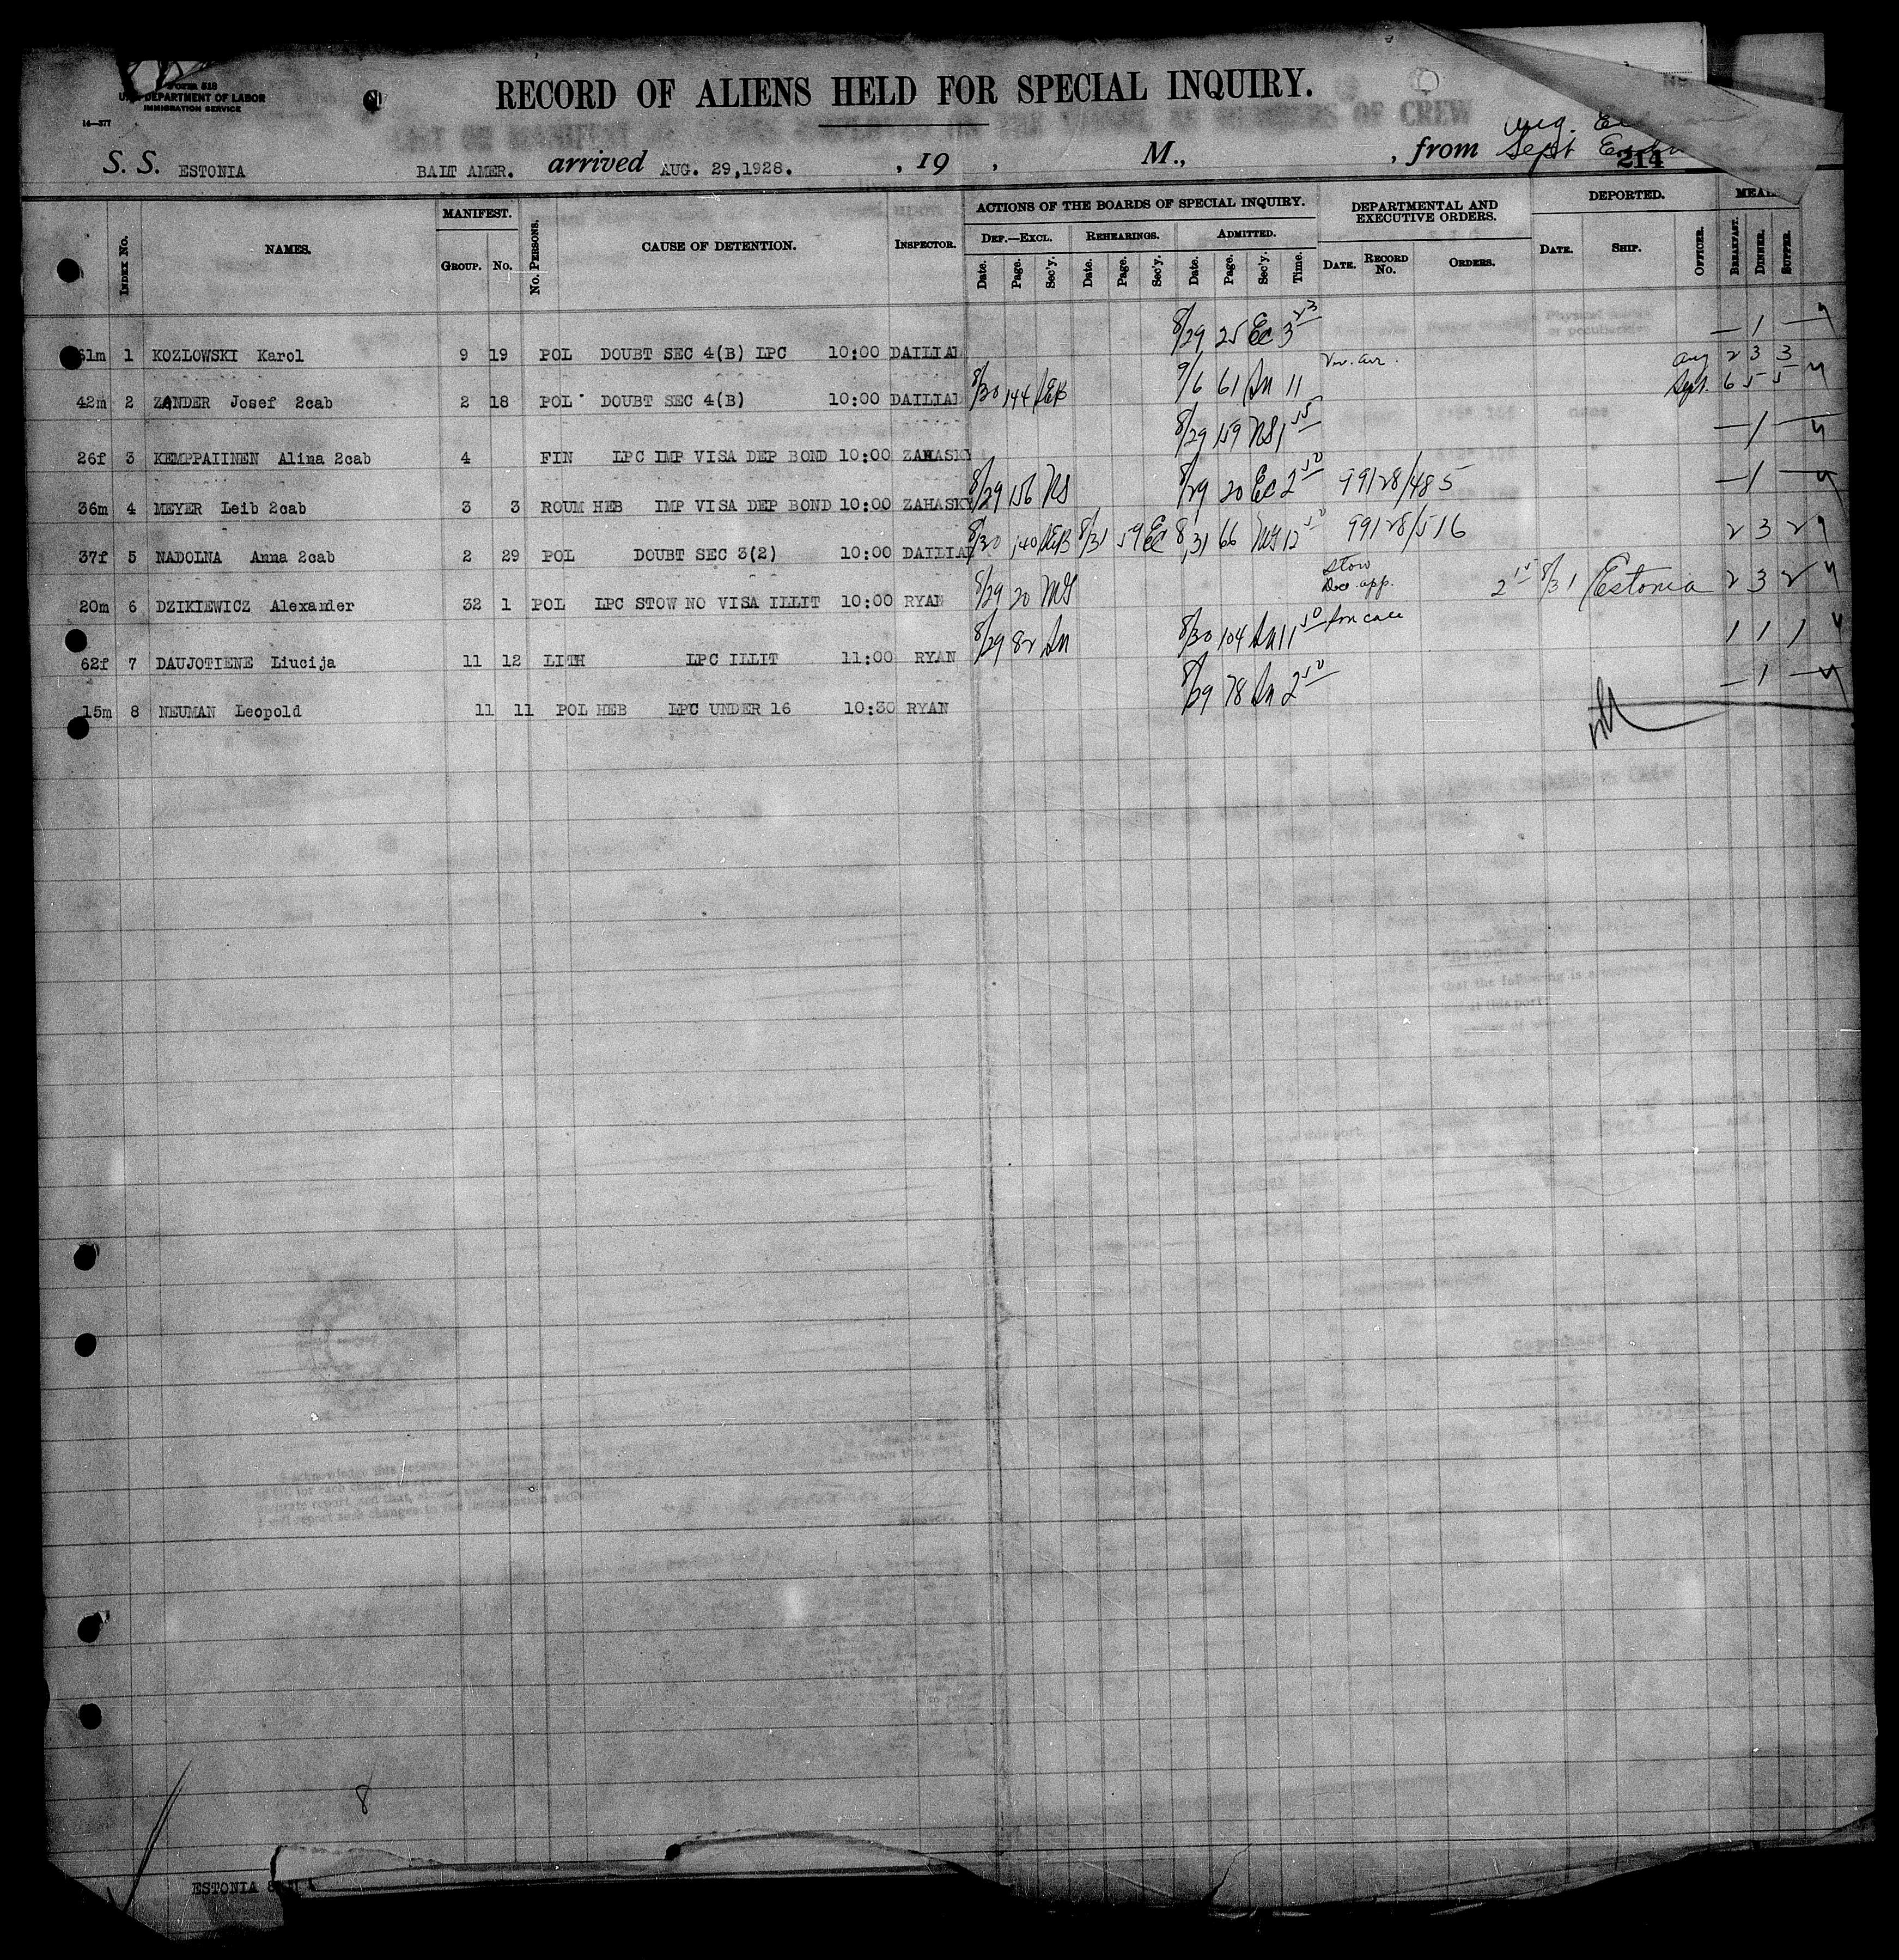 Form 518
U.S. DEPARTMENT OF LABOR
IMMIGRATION SERVICE
14—377
RECORD OF ALIENS HELD FOR SPECIAL INQUIRY.
S. S. ESTONIA BALT AMER. arrived AUG. 29,1928. , 19 , M., , from Sept
214
INDEX No. NAMES. MANIFEST. GROUP. No. No. PERSONS. CAUSE OF DETENTION. INSPECTOR. ACTIONS OF THE BOARDS OF SPECIAL INQUIRY. DEPARTMENTAL AND EXECUTIVE ORDERS. DEPORTED.
DEF.—EXCL. REHEARINGS. ADMITTED.
Date. Page. Sec'y. Date. Page. Sec'y. Date. Page. Sec'y. Time. DATE. RECORD No. ORDERS. DATE. SHIP. OFFICER. BREAKFAST. DINNER. SUPPER.
61m 1 KOZLOWSKI Karol 9 19 POL DOUBT SEC 4(B) LPC 10:00 DAILIAD 8/29 25 Ec 3 23 — 1 —
42m 2 ZANDER Josef 2cab 2 18 POL DOUBT SEC 4(B) 10:00 DAILIAD 8/30 144 AEB 9/6 61 Sn 11 Aug 2 3 3 Sept. 6 5 5
26f 3 KEMPPAIINEN Alina 2cab 4 FIN LPC IMP VISA DEP BOND 10:00 ZAHASKY 8/29 159 NS 1 15 — 1 —
36m 4 MEYER Leib 2cab 3 3 ROUM HEB IMP VISA DEP BOND 10:00 ZAHASKY 8/29 156 NS 8/29 20 Ec 2 50 99128/485 — 1 —
37f 5 NADOLNA Anna 2cab 2 29 POL DOUBT SEC 3(2) 10:00 DAILIAD 8/30 140 AEB 8/31 59 Ec 8/31 66 MG 12 50 99128/516 2 3 2
20m 6 DZIKIEWICZ Alexander 32 1 POL LPC STOW NO VISA ILLIT 10:00 RYAN 8/29 20 MG Stow 2 15 8/31 Estonia 2 3 2
62f 7 DAUJOTIENE Liucija 11 12 LITH LPC ILLIT 11:00 RYAN 8/29 82 Sn 8/30 104 Sn 11 50 1 1 1
15m 8 NEUMAN Leopold 11 11 POL HEB LPC UNDER 16 10:30 RYAN 8/29 78 Sn 2 50 — 1 —
8
ESTONIA